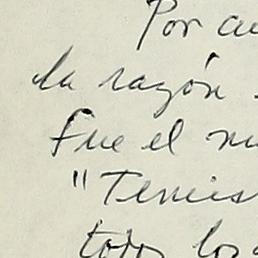 Por
la razón
fue el
"Tenis
todos los